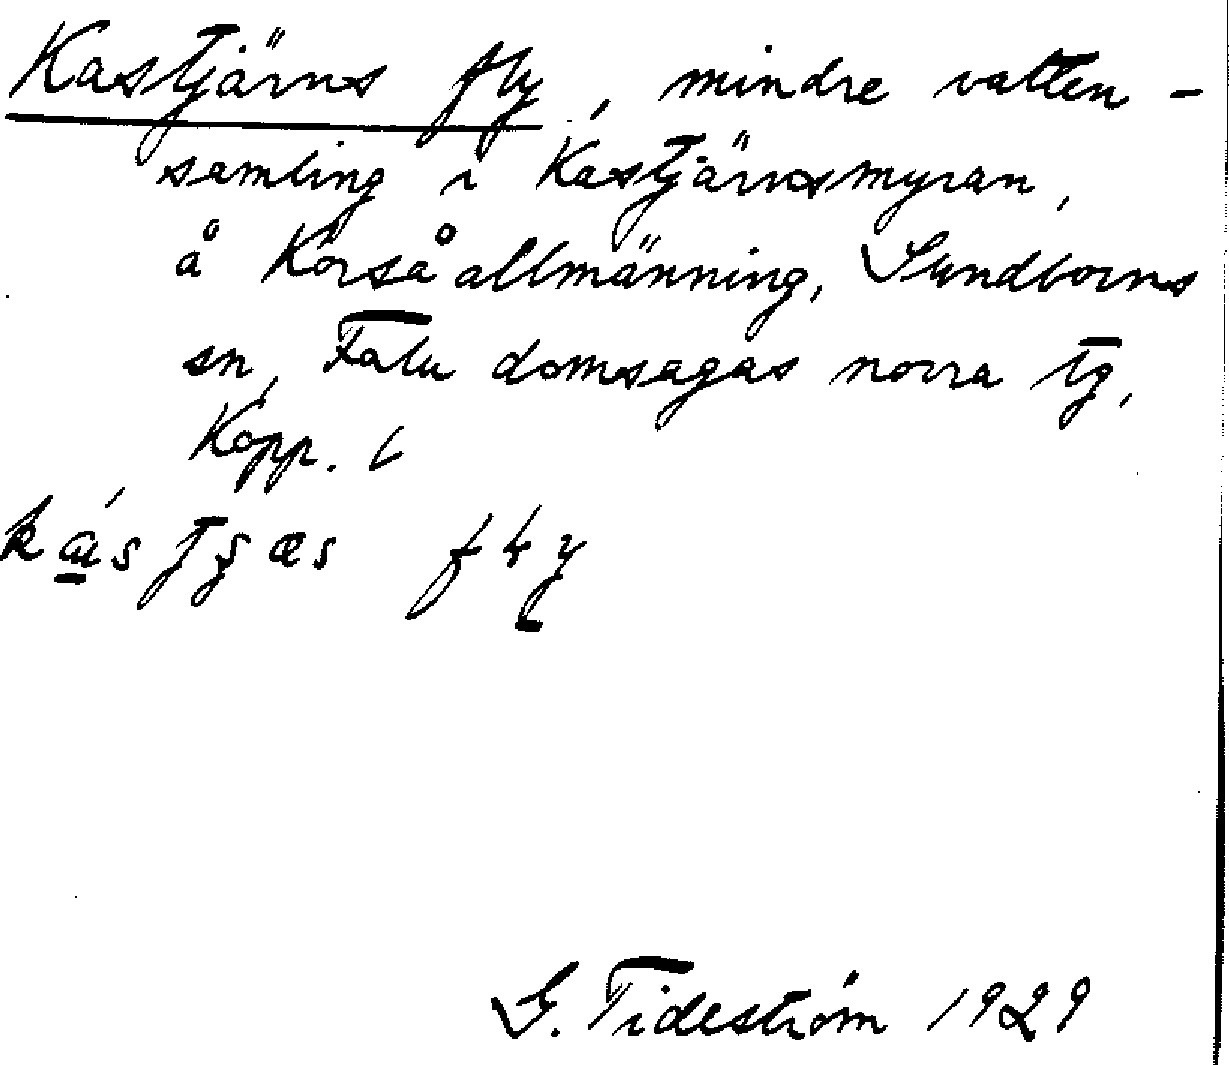 Kastjärns fly, mindre vatten-
samling i Kastjärnsmyran,
å Korså allmänning, Sundborns
sn, Falu domsagas norra tg,
Kopp. l
G. Tideström 1929